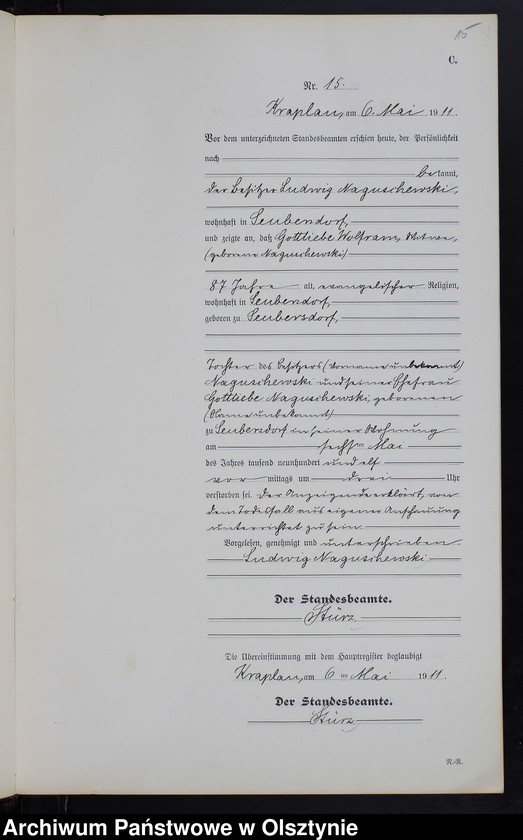 15
C.
Nr. 15.
Kraplau, am 6. Mai 1911.
Vor dem unterzeichneten Standesbeamten erschien heute, der Persönlichkeit
nach
bekannt,
der Besitzer Ludwig Naguschewski,
wohnhaft in Seubendorf,
und zeigte an, daß Gottliebe Wolfram, Witwe,
(geborene Naguschewski)
87 Jahre alt, evangelischer Religion,
wohnhaft in Seubendorf,
geboren zu Seubersdorf,
Tochter des Besitzers (Vorname unbekannt)
Naguschewski und seiner Ehefrau
Gottliebe Naguschewski, geborenen
(Name unbekannt)
zu Seubersdorf in seiner Wohnung
am sechsten Mai
des Jahres tausend neunhundert und elf
vor mittags um drei Uhr
verstorben sei. Der Anzeigende erklärt, von
dem Todesfall aus eigener Anschauung
unterrichtet zu sein.
Vorgelesen, genehmigt und unterschrieben.
Ludwig Naguschewski
Der Standesbeamte.
Stürz
Die Übereinstimmung mit dem Hauptregister beglaubigt
Kraplau, am 6 ten Mai 1911.
Der Standesbeamte.
Stürz
R.-R.
Archiwum Państwowe w Olsztynie